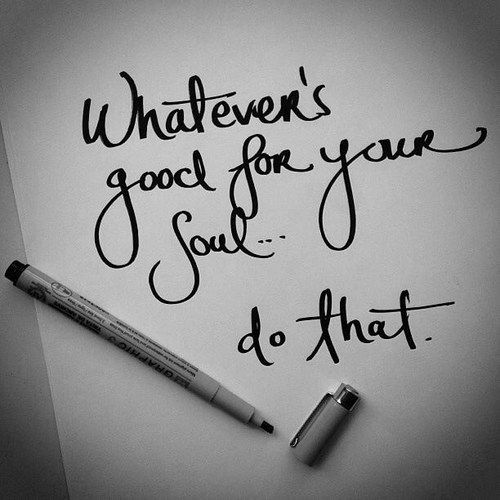 Whatever's
good for your
Soul...
do that.
GRAPHIC